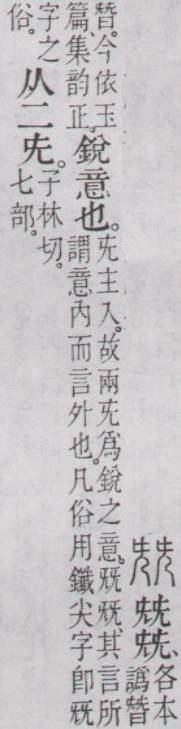 兓兓、各本譌朁
朁。今依玉篇、集韵正。銳意也。兂主入。故兩兂爲銳之意。兓兓其言所謂意內而言外也。凡俗用鑯尖字卽兓
字之俗。从二兂。子林切。七部。